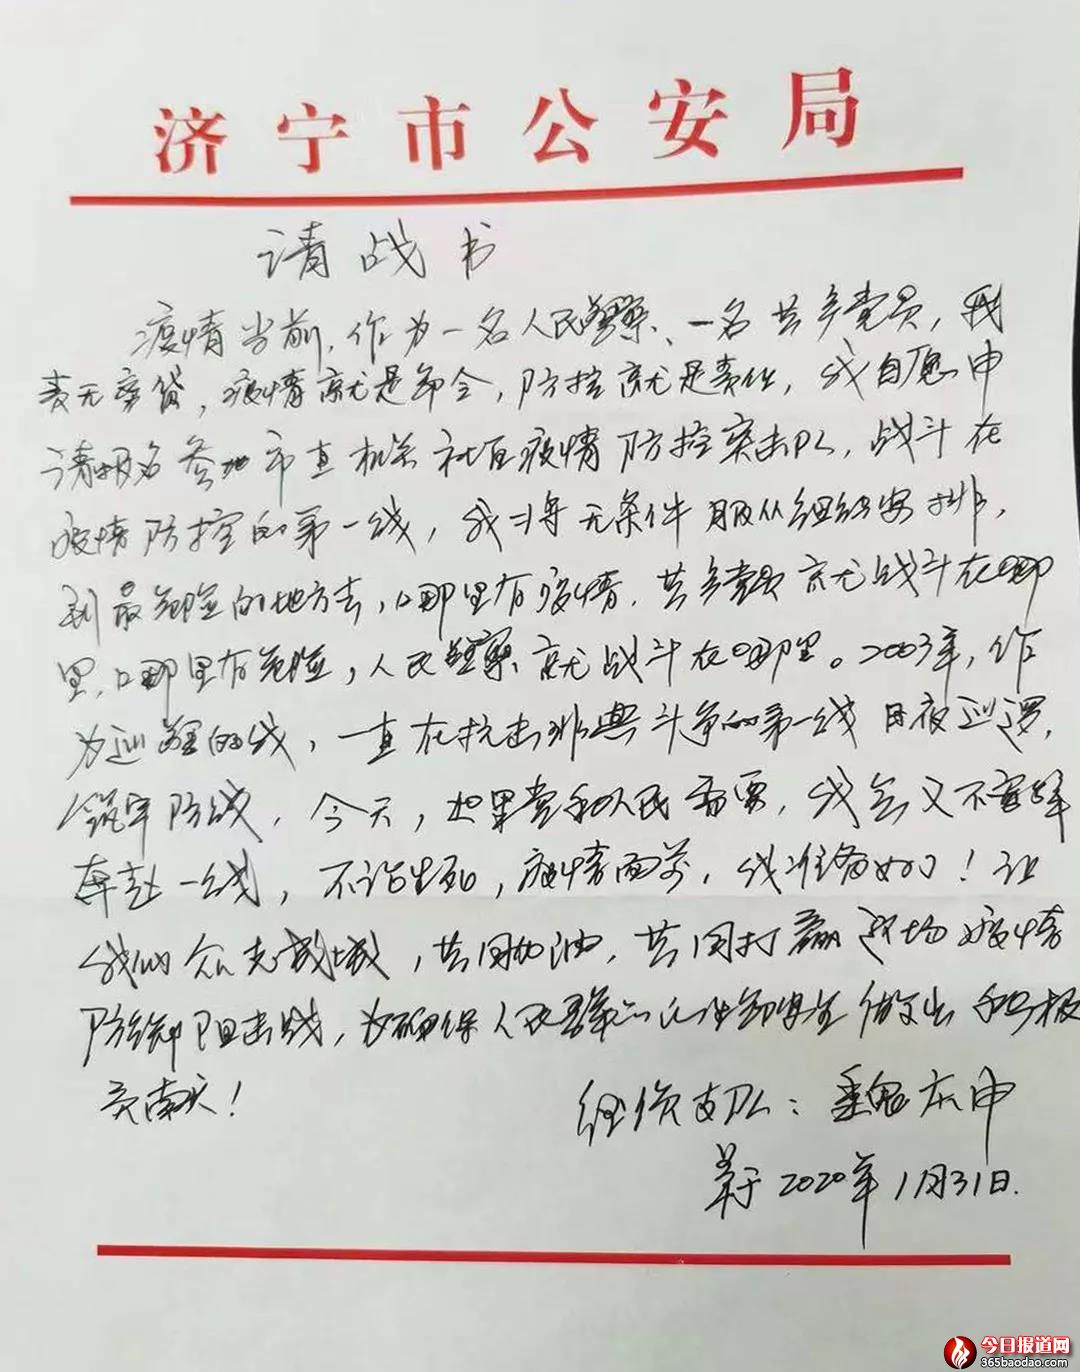 济宁市公安局
请战书
疫情当前,作为一名人民警察、一名共产党员,我
责无旁贷,疫情就是命令,防控就是责任,我自愿申
请报名参加市直机关社区疫情防控突击队,战斗在
疫情防控的第一线,我将无条件服从组织安排,
到最危险的地方去,哪里有疫情,共产党员就战斗在哪
里,哪里有危险,人民警察就战斗在哪里。2003年,作
为巡警的我,一直在抗击非典斗争的第一线日夜巡逻,
筑牢防线,今天,如果党和人民需要,我会义不容辞
奔赴一线,不论生死,疫情面前,我准备好了!让
我们众志成城,共同加油,共同打赢这场疫情
防御阻击战,为确保人民群众的生命安全做出积极
贡献!
经侦支队:魏庆申
于2020年1月31日.
今日报道网
365baodao.com